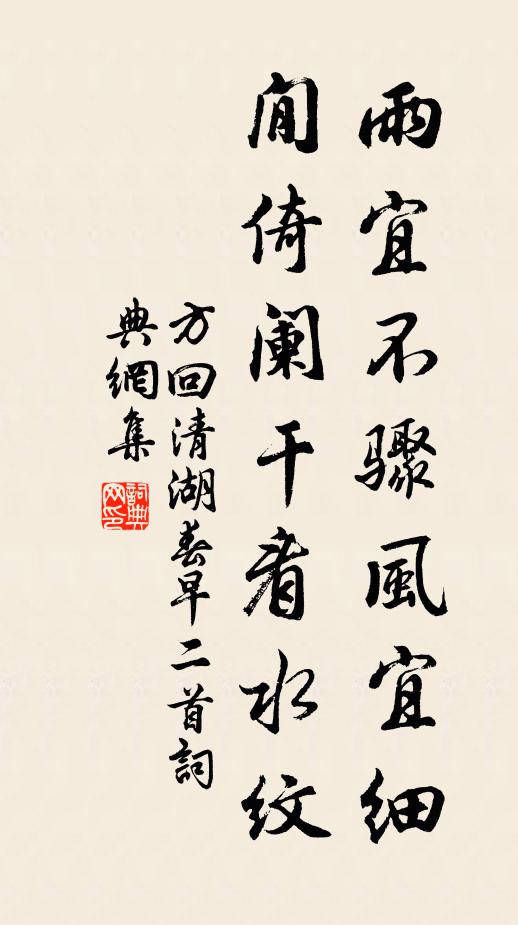 雨宜不驟風宜細
閒倚闌干看水紋
方回清湖春早二首詞
典網集
詞典
网印